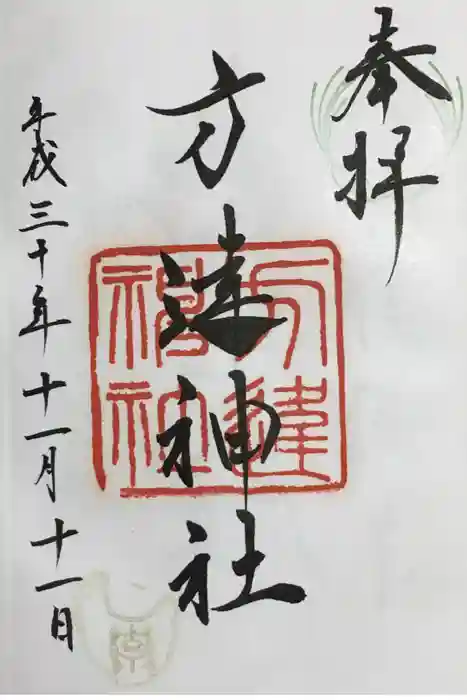 奉拝
方違神社
平成三十年十一月十一日
方違
神社